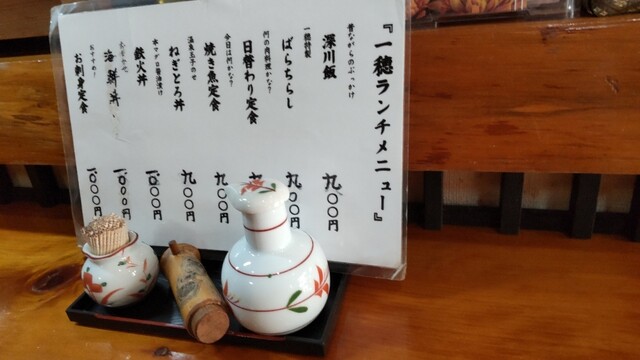 『一穂ランチメニュー』
昔ながらのぶっかけ
深川飯 九〇〇円
一穂特製
ばらちらし 九〇〇円
何の肉料理かな?
日替わり定食 九
今日は何かな?
焼き魚定食 九〇〇円
温泉玉子のせ
ねぎとろ丼 九〇〇円
本マグロ醤油漬け
鉄火丼 一、〇〇〇円
海鮮丼 一、〇〇〇円
おすすめ!
お刺身定食 一、〇〇〇円